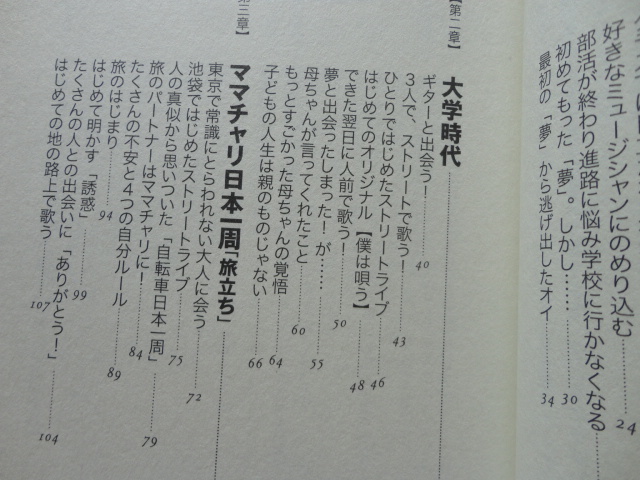 好きなミュージシャンにのめり込む……24
部活が終わり進路に悩み学校に行かなくなる……
初めてもった「夢」。しかし……30
最初の「夢」から逃げ出したオイ……34
【第二章】 大学時代……
ギターと出会う！……40
3人で、ストリートで歌う！……43
ひとりではじめたストリートライブ……46
はじめてのオリジナル【僕は唄う】……48
できた翌日に人前で歌う！……50
夢と出会ってしまった！が……55
母ちゃんが言ってくれたこと……60
もっとすごかった母ちゃんの覚悟……64
子どもの人生は親のものじゃない……66
【第三章】 ママチャリ日本一周「旅立ち」……
東京で常識にとらわれない大人に会う……72
池袋ではじめたストリートライブ……75
人の真似から思いついた「自転車日本一周」……79
旅のパートナーはママチャリに！……84
たくさんの不安と4つの自分ルール……89
旅のはじまり……94
はじめて明かす「誘惑」……99
たくさんの人との出会いに「ありがとう！」……104
はじめての地の路上で歌う……107